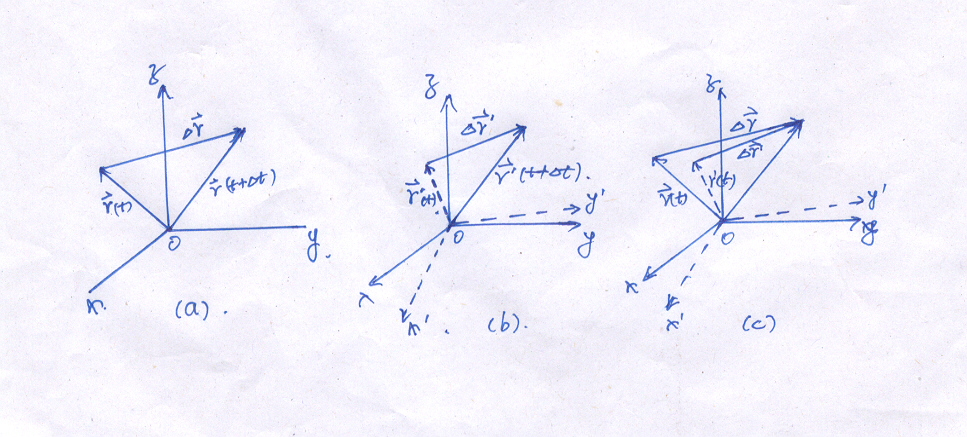 z
Δr⃗
r⃗(t)
r⃗(t+Δt)
O
y.
x.
(a).
z
Δr⃗'
r⃗'(t)
r⃗'(t+Δt).
y'
O
y
x
x'.
(b).
z
Δr⃗
Δr⃗'
r⃗(t)
r'(t)
y'
O
y
x
x'
(c)